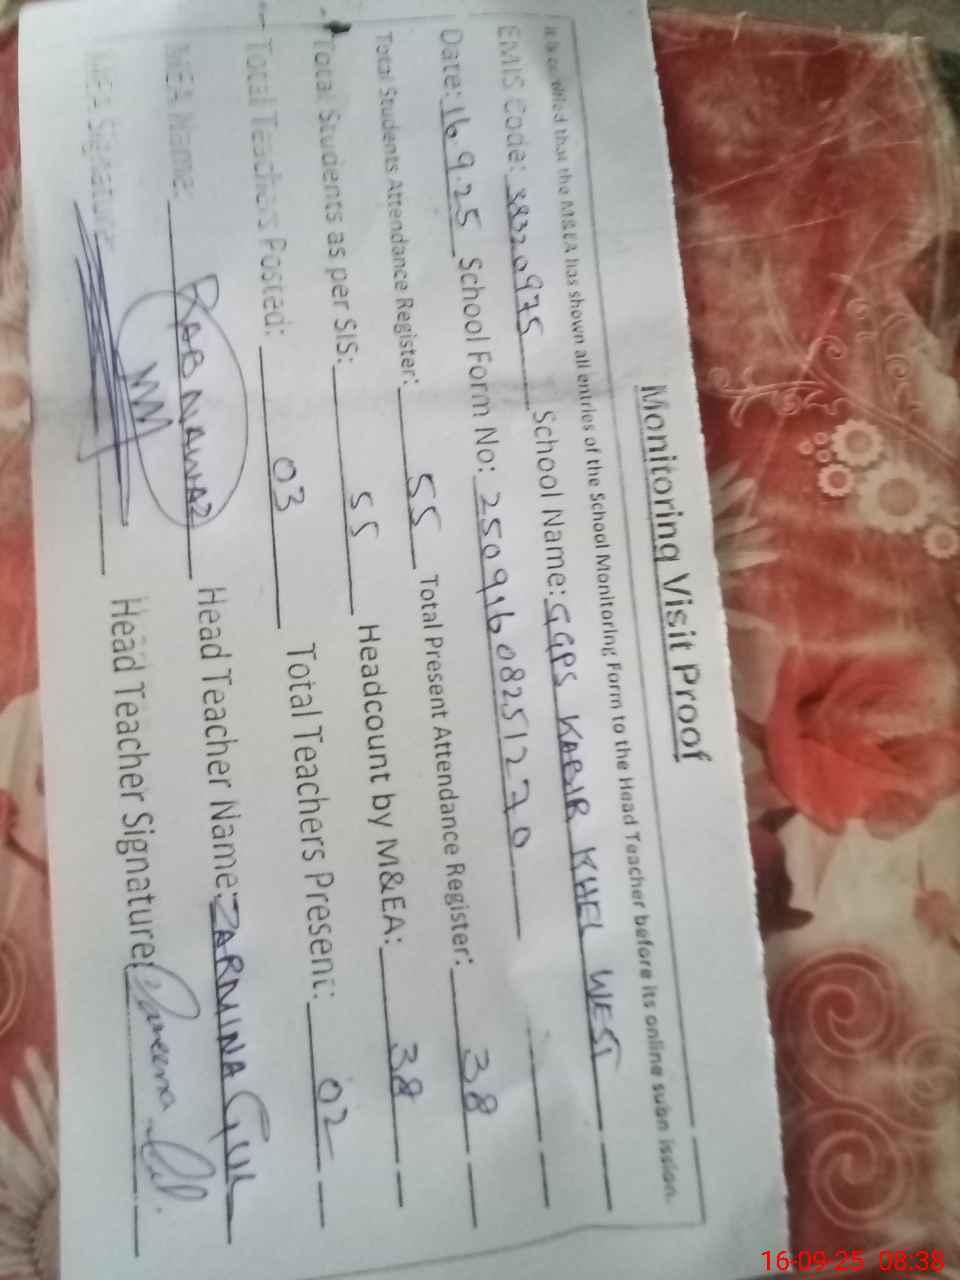 Monitoring Visit Proof
It is certified that the M&EA has shown all entries of the School Monitoring Form to the Head Teacher before its online submission.
EMIS Code: 38320975 School Name: GGPS KABIR KHEL WEST
Date: 16.9.25 School Form No: 25091608251270
Total Students Attendance Register: 55 Total Present Attendance Register: 38
Total Students as per SIS: 55 Headcount by M&EA: 38
Total Teachers Posted: 03 Total Teachers Present: 02
MEA Name: RAB NAWAZ Head Teacher Name: ZARMINA GUL
MEA Signature Head Teacher Signature:
16-09-25 08:38